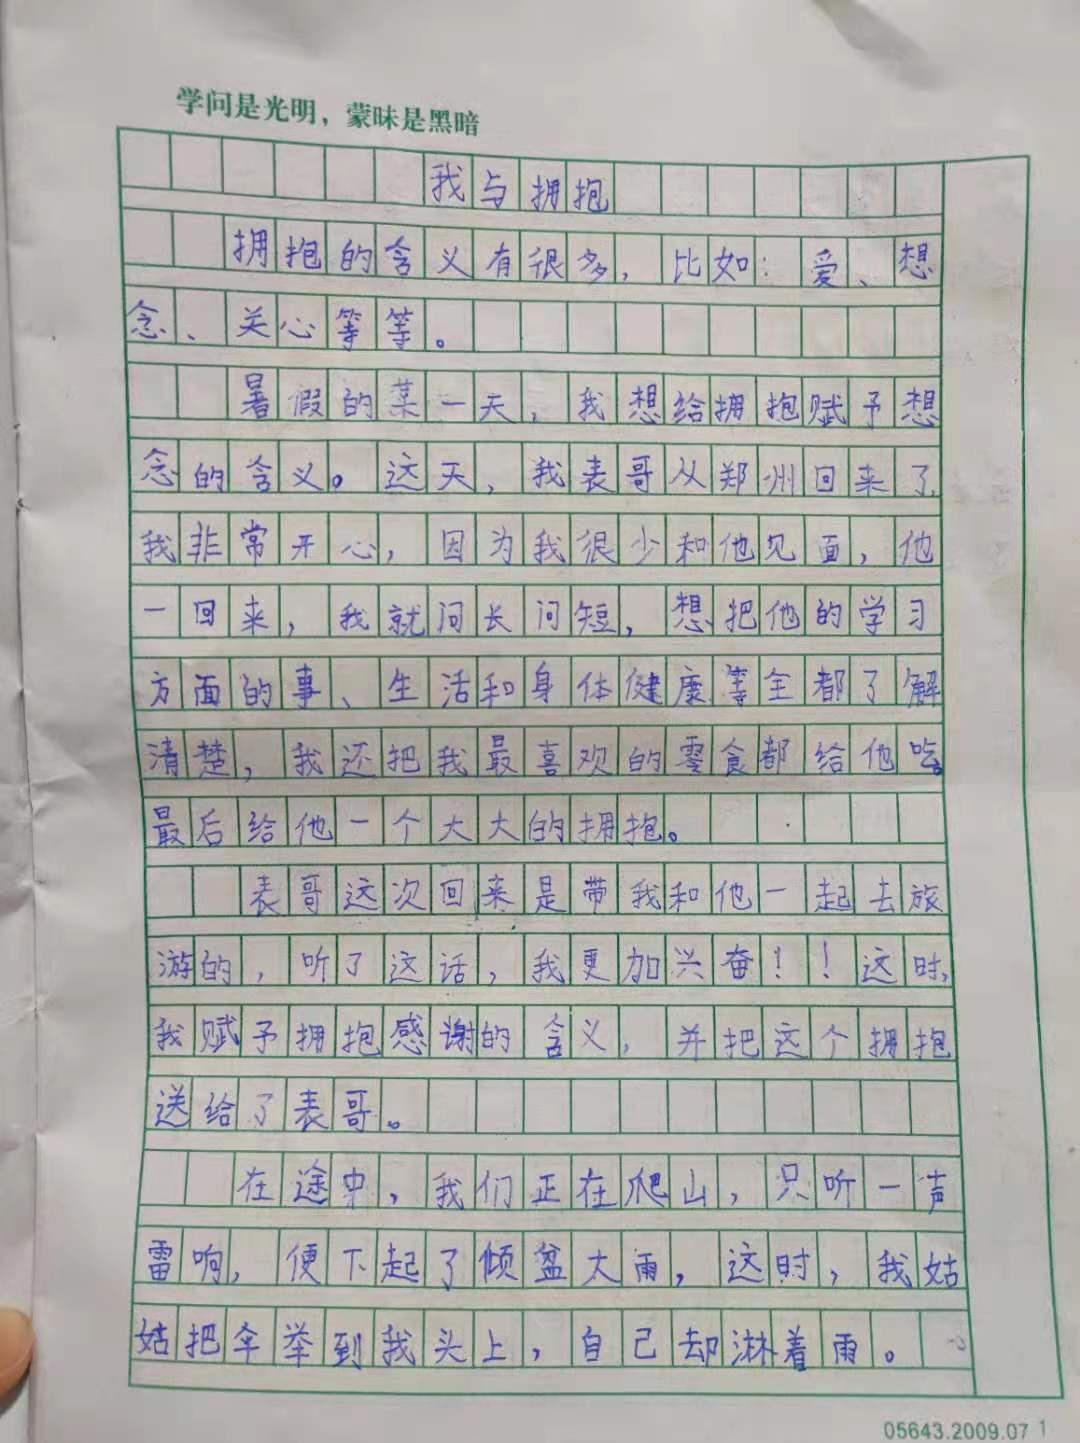 学问是光明，蒙昧是黑暗
我与拥抱
拥抱的含义有很多，比如：爱、想
念、关心等等。
暑假的某一天，我想给拥抱赋予想
念的含义。这天，我表哥从郑州回来了，
我非常开心，因为我很少和他见面，他
一回来，我就问长问短，想把他的学习
方面的事、生活和身体健康等全都了解
清楚，我还把我最喜欢的零食都给他吃。
最后给他一个大大的拥抱。
表哥这次回来是带我和他一起去旅
游的，听了这话，我更加兴奋！！这时，
我赋予拥抱感谢的含义，并把这个拥抱
送给了表哥。
在途中，我们正在爬山，只听一声
雷响，便下起了倾盆大雨，这时，我姑
姑把伞举到我头上，自己却淋着雨。
05643.2009.07 1